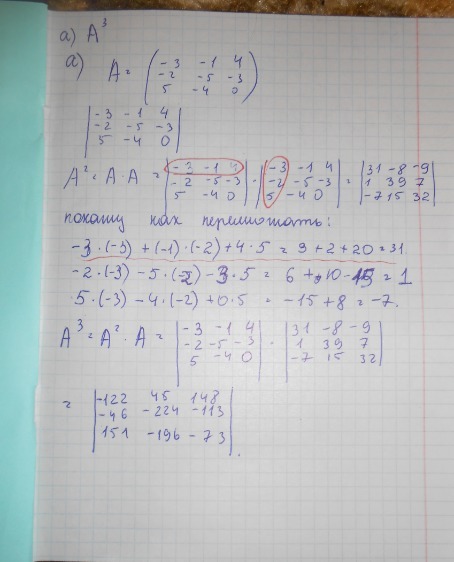 а) A³
а) A = (-3 -1 4
-2 -5 -3
5 -4 0)
|-3 -1 4|
|-2 -5 -3|
|5 -4 0|
A² = A · A = |-3 -1 4| · |-3 -1 4| = |31 -8 -9|
|-2 -5 -3| |-2 -5 -3| |1 39 7|
|5 -4 0| |5 -4 0| |-7 15 32|
покажу как перемножать:
-3·(-3) + (-1)·(-2) + 4·5 = 9 + 2 + 20 = 31
-2·(-3) - 5·(-2) - 3·5 = 6 + 10 - 15 = 1
5·(-3) - 4·(-2) + 0·5 = -15 + 8 = -7.
A³ = A² · A = |-3 -1 4| · |31 -8 -9|
|-2 -5 -3| |1 39 7|
|5 -4 0| |-7 15 32|
= |-122 45 148|
|-46 -224 -113|
|151 -196 -73|.